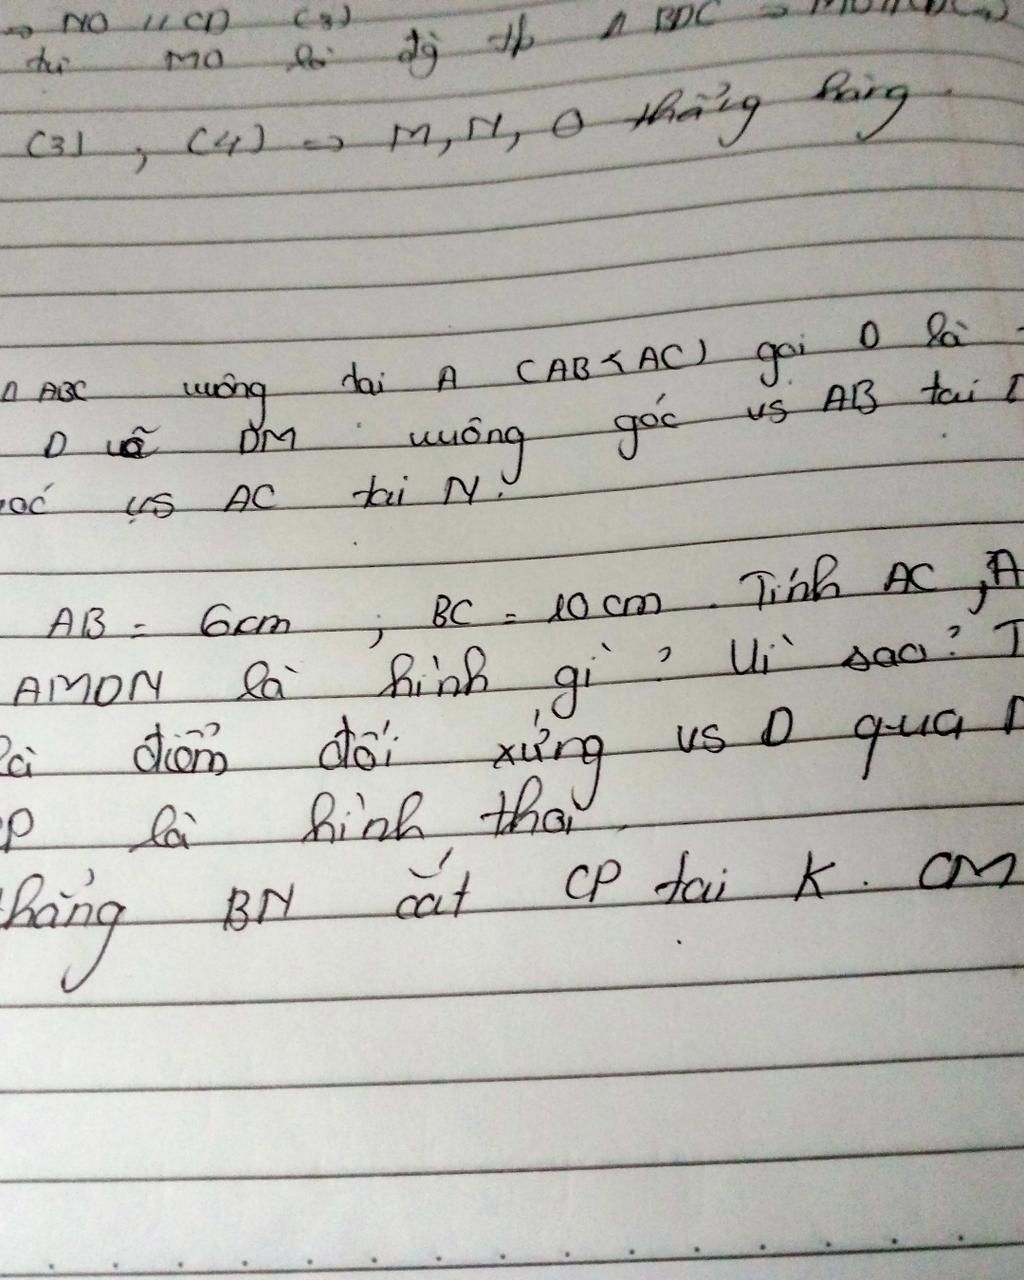 ⇒ NO // CD (3)
MO là đg tb Δ BDC ⇒ MO //
(3) , (4) ⇒ M, N, O thẳng hàng
Δ ABC vuông tại A (AB < AC) gọi D là
D vẽ DM vuông góc vs AB tại
vs AC tại N.
AB = 6cm ; BC = 10 cm . Tính AC , A
AMDN là hình gì ? Vì sao ?
điểm đối xứng vs D qua
P là hình thoi
BN cắt CP tại K . CM